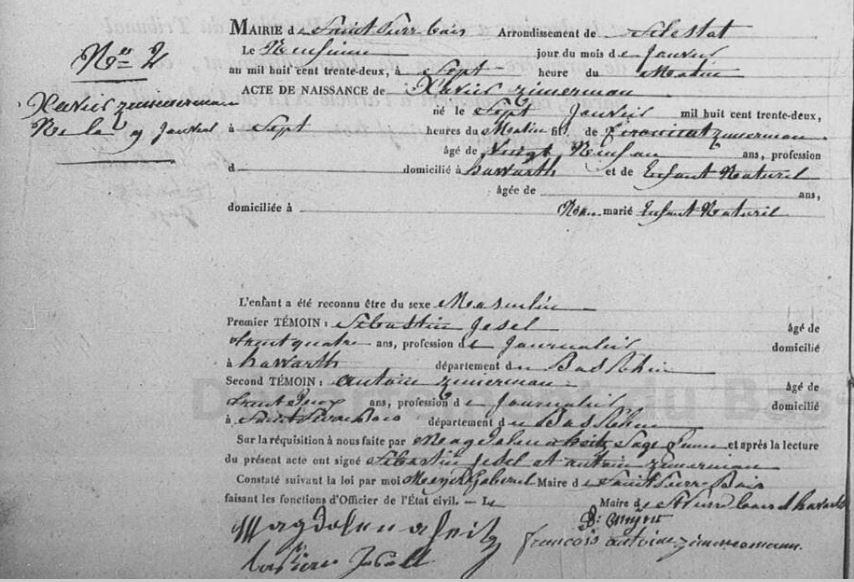 MAIRIE de Saint Pierre bois Arrondissement de Selestat
N° 2
Le Neufieme jour du mois de Janvier
an mil huit cent trente-deux, à Sept heure du Matin
ACTE DE NAISSANCE de Xavier zimerman
Xavier zimmermann
né le Sept Janvier mil huit cent trente-deux,
Ne la 9 Janvier
à Sept heures du Matin fils de zimerman
âgé de Vingt Neuf an ans, profession
d domicilié à hawarth et de Enfant Naturel
âgée de ans,
domiciliée à Non marié Enfant Naturil
L'enfant a été reconnu être du sexe Masculin
Premier TÉMOIN : Sebastin Jesel âgé de
trent quatre ans, profession de Journalier domicilié
à hawarth département du Bas Rhin
Second TÉMOIN : antoin zimerman âgé de
trent ans, profession de Journalier domicilié
à Saint Pierre Bois département du Bas Rhin
Sur la réquisition à nous faite par Magdalena Seitz Sage femme et après la lecture
du présent acte ont signé Sebastin Jesel et antoin zimerman
Constaté suivant la loi par moi Maire de Saint Pierre Bois
faisant les fonctions d'Officier de l'État civil. — Le Maire de St Pierre bois et hawarth
Magdalena Seitz
francois antoine zimmermann.